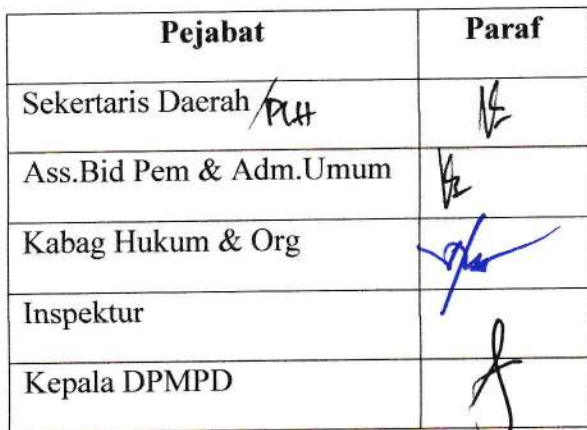 Pejabat Paraf
Sekertaris Daerah /PLH
Ass.Bid Pem & Adm.Umum
Kabag Hukum & Org
Inspektur
Kepala DPMPD